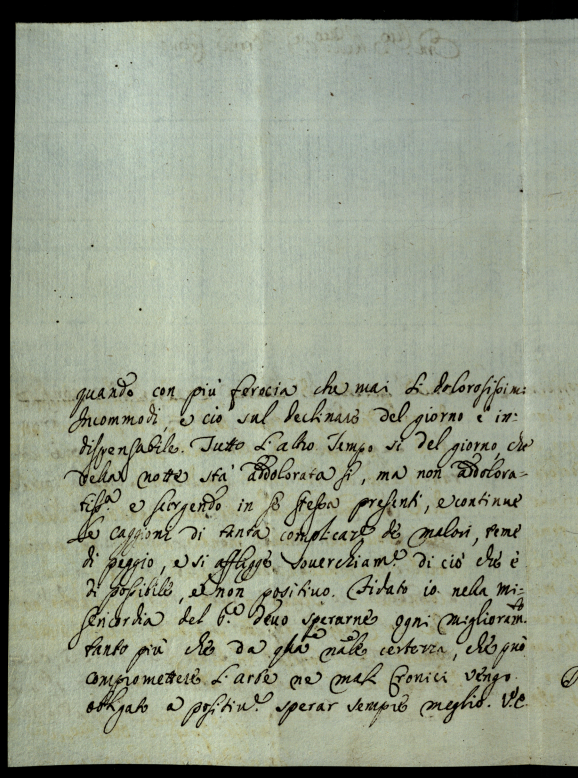 quando con più ferocia che mai li dolorosissim:
Incommodi, e ciò sul declinare del giorno è in:
dispensabile. Tutto l'altro Tempo si del giorno, che
della notte stà addolorata si, ma non addolora=
tiss.ª e scorgendo in se stessa presenti, e continue
le caggioni di tanta complicaz.e de malori, teme
di peggio, e si affligge soverchiam.e di ciò che è
di possibile, e non positivo. Fidato io nella mi=
sericordia del S.e devo sperarne ogni miglioram.to
tanto più che da qlla nãle certezza, che può
compromettere l'arte ne mali Cronici vengo
obbligato a positiv.e sperar sempre meglio. V.E.